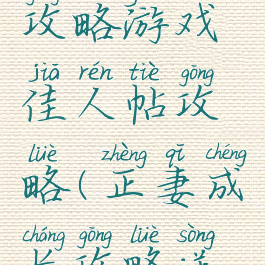 攻略游戏
jiā rén tiè gōng
佳人帖攻
lüè zhèng qī chéng
略(正妻成
cháng gōng lüè sòng
长攻略送